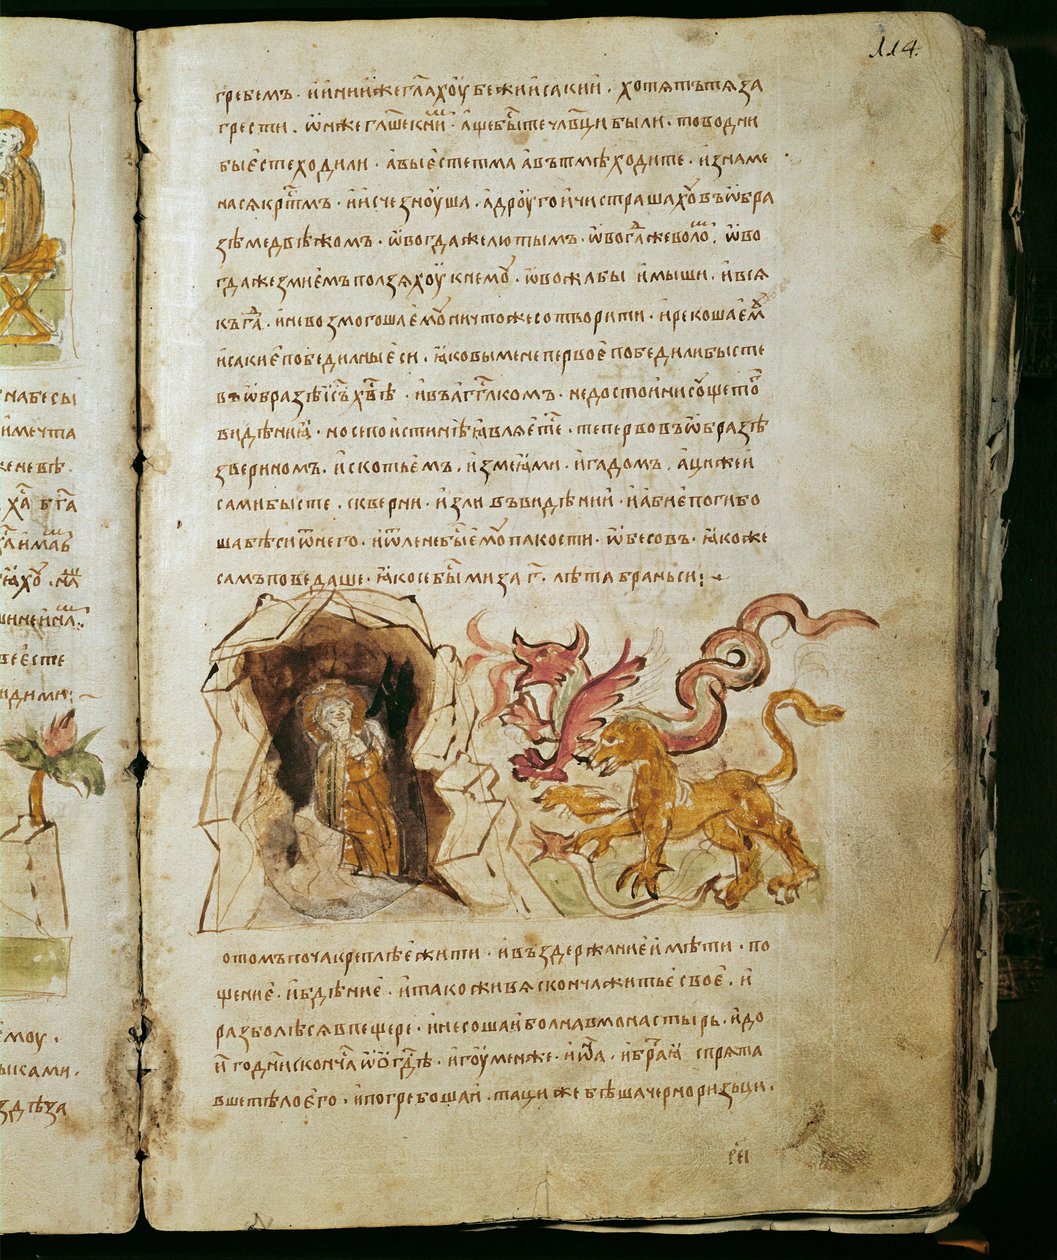 114.
гребемъ · и инииже гл҃ахоу бежи исакий · хотят ътя за
грести · ѡн же гл҃ше к ни · аще бы҃ те чл҃вци были · то во дни
бы есте ходили · а вы есте тма а въ тмѣ ходите · и знаме
нася кр҃стмъ · и исчезноуша · а дроугоичи страшахоу въ ѡбра
зѣ медвѣжом · ѡвогда же лютымъ · ѡвог҃да же воло҃ · ѡво
гда же змиемъ полззяхоу к немоу · ѡво жабы и мыши · и вся
къ г҃а · и не возмогоша емоу ничтоже сотворити · и рекоша ем҃
исакие победилъ ны еси · ꙗко вы мене первое победили бысте
въ ѡбразѣ іс҃ъ хв҃ѣ · и въ аг҃глком · недостойни соуще то҃
видѣниꙗ · но се по истинѣ ꙗвляете · теперво въ ѡбразѣ
зверином · и скотьем · и змеꙗми · и гадом · аци же и
сами бысте · скверни · и зли въ видѣнии · и абие погибо
ша бѣси ѿ него · и ѿтоле не бы҃ емоу пакости · ѿ бесовъ · ꙗкоже
самъ поведаше · ꙗко се бы҃ ми за г҃ · лѣтя брань си :~
отом поча креплѣе жити · и въздержание имѣти · по
щение · и бдѣние · и тако живя сконча житье свое · и
разболѣся в пещере · и несоша и болна в монастырь · и до
и҃ го дни сконча ѡ г҃дѣ · игоумен же · иѡа · и брат҃ꙗ спрята
вше тѣло его · и погребоша и · таци же бѣша черноризьци ·
рд҃і
набесы
имечта
бг҃а
есте
видими :~
моу ·
ыками ·